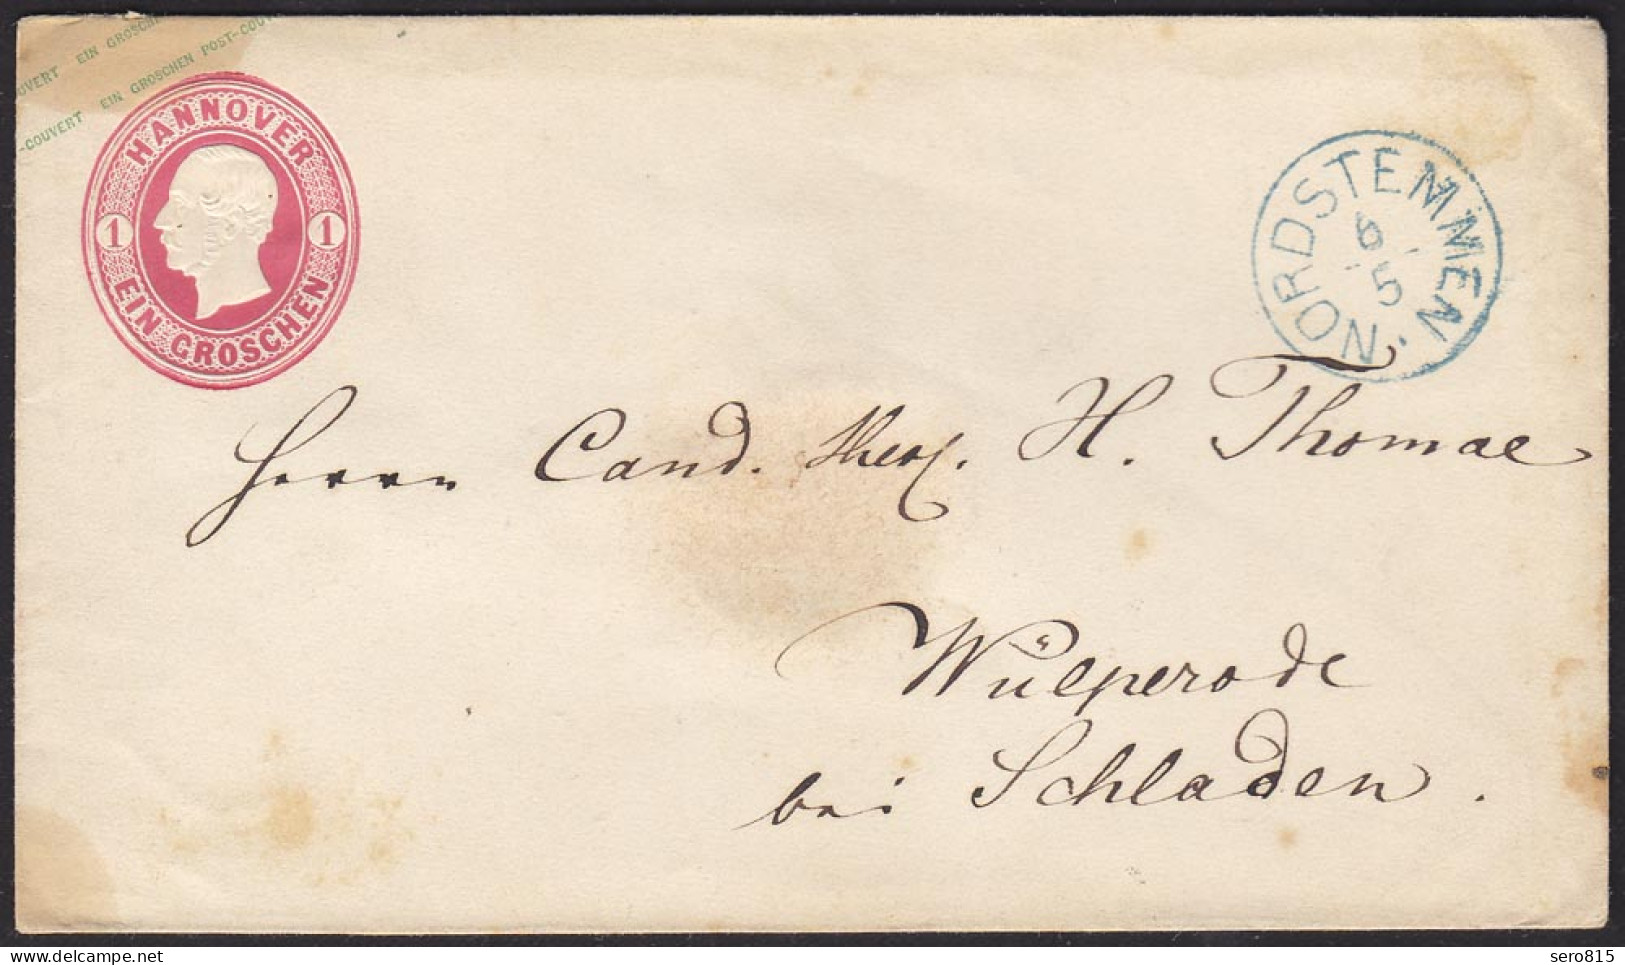 OUVERT EIN GROSCH
-COUVERT EIN GROSCHEN POST-COUV
HANNOVER
1 1
EIN GROSCHEN
NORDSTEMMEN.
6
5
Herrn Cand. Theol. H. Thomae
Wülperode
bei Schladen.
sero815